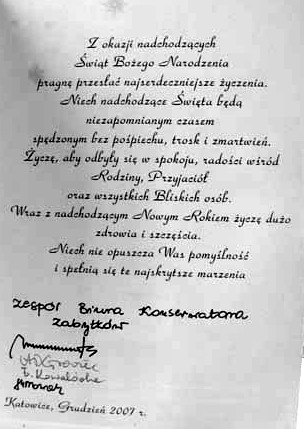 Z okazji nadchodzących
Świąt Bożego Narodzenia
pragnę przesłać najserdeczniejsze życzenia.
Niech nadchodzące Święta będą
niezapomnianym czasem
spędzonym bez pośpiechu, trosk i zmartwień.
Życzę, aby odbyły się w spokoju, radości wśród
Rodziny, Przyjaciół
oraz wszystkich Bliskich osób.
Wraz z nadchodzącym Nowym Rokiem życzę dużo
zdrowia i szczęścia.
Niech nie opuszcza Was pomyślność
i spełnią się te najskrytsze marzenia
Zespół Biura Konserwatora
Zabytków
Katowice, Grudzień 2007 r.